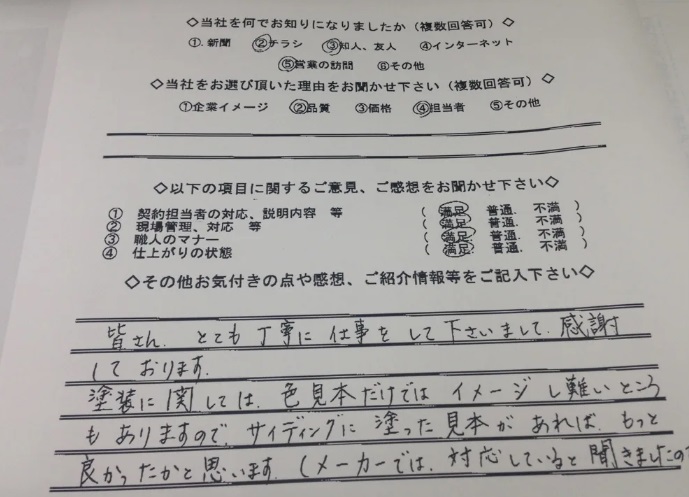 ◇当社を何でお知りになりましたか（複数回答可）◇
①．新聞 ②チラシ ③知人、友人 ④インターネット
⑤営業の訪問 ⑥その他
◇当社をお選び頂いた理由をお聞かせ下さい（複数回答可）◇
①企業イメージ ②品質 ③価格 ④担当者 ⑤その他
◇以下の項目に関するご意見、ご感想をお聞かせ下さい◇
① 契約担当者の対応、説明内容 等 （ 満足. 普通. 不満 ）
② 現場管理、対応 等 （ 満足. 普通. 不満 ）
③ 職人のマナー （ 満足. 普通. 不満 ）
④ 仕上がりの状態 （ 満足. 普通. 不満 ）
◇その他お気付きの点や感想、ご紹介情報等をご記入下さい◇
皆さん、とても丁寧に仕事をして下さいまして、感謝
しております。
塗装に関しては、色見本だけではイメージし難いところ
もありますので、サイディングに塗った見本があれば、もっと
良かったかと思います。（メーカーでは、対応していると聞きましたの